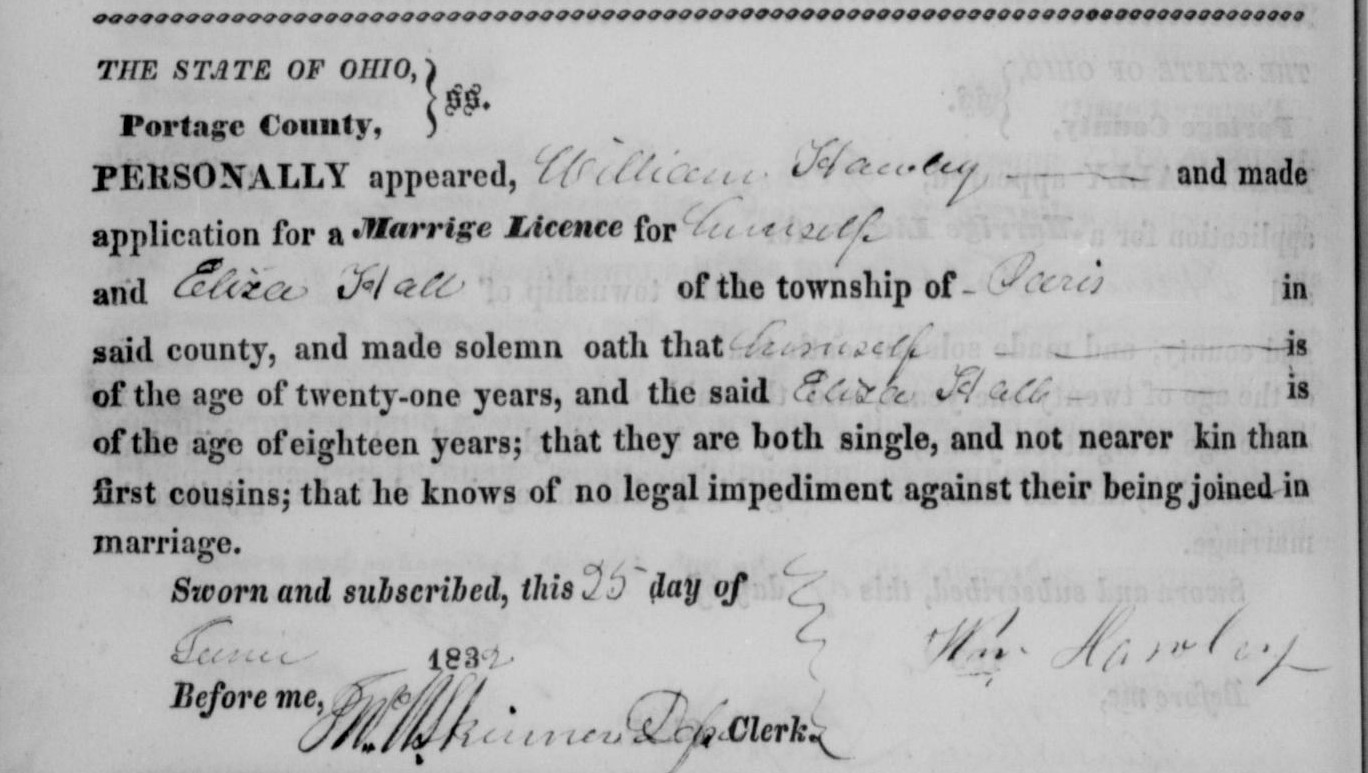 THE STATE OF OHIO, } §§.
Portage County,
PERSONALLY appeared, William Hawley and made
application for a Marrige Licence for himself
and Eliza Hall of the township of Paris in
said county, and made solemn oath that himself is
of the age of twenty-one years, and the said Eliza Hall is
of the age of eighteen years; that they are both single, and not nearer kin than
first cousins; that he knows of no legal impediment against their being joined in
marriage.
Sworn and subscribed, this 25 day of
June 1832 Wm. Hawley
Before me, Skinner Dep. Clerk.